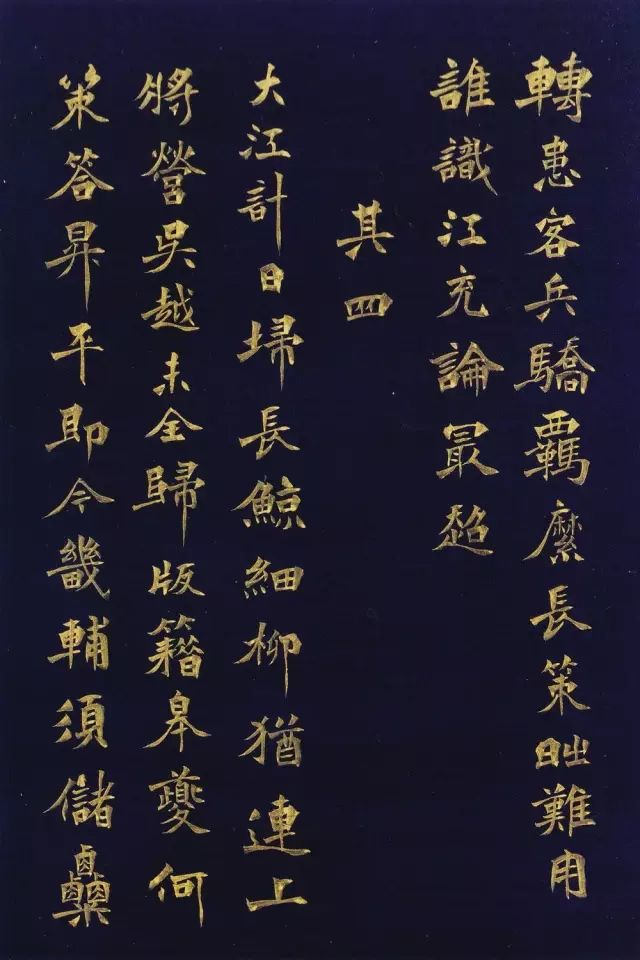 轉患客兵驕羈縻長策昢難用
誰識江充論最超
其四
大江計日埽長鯨細柳猶連上
將營吳越未全歸版籍皋夔何
策答昇平即今畿輔須儲